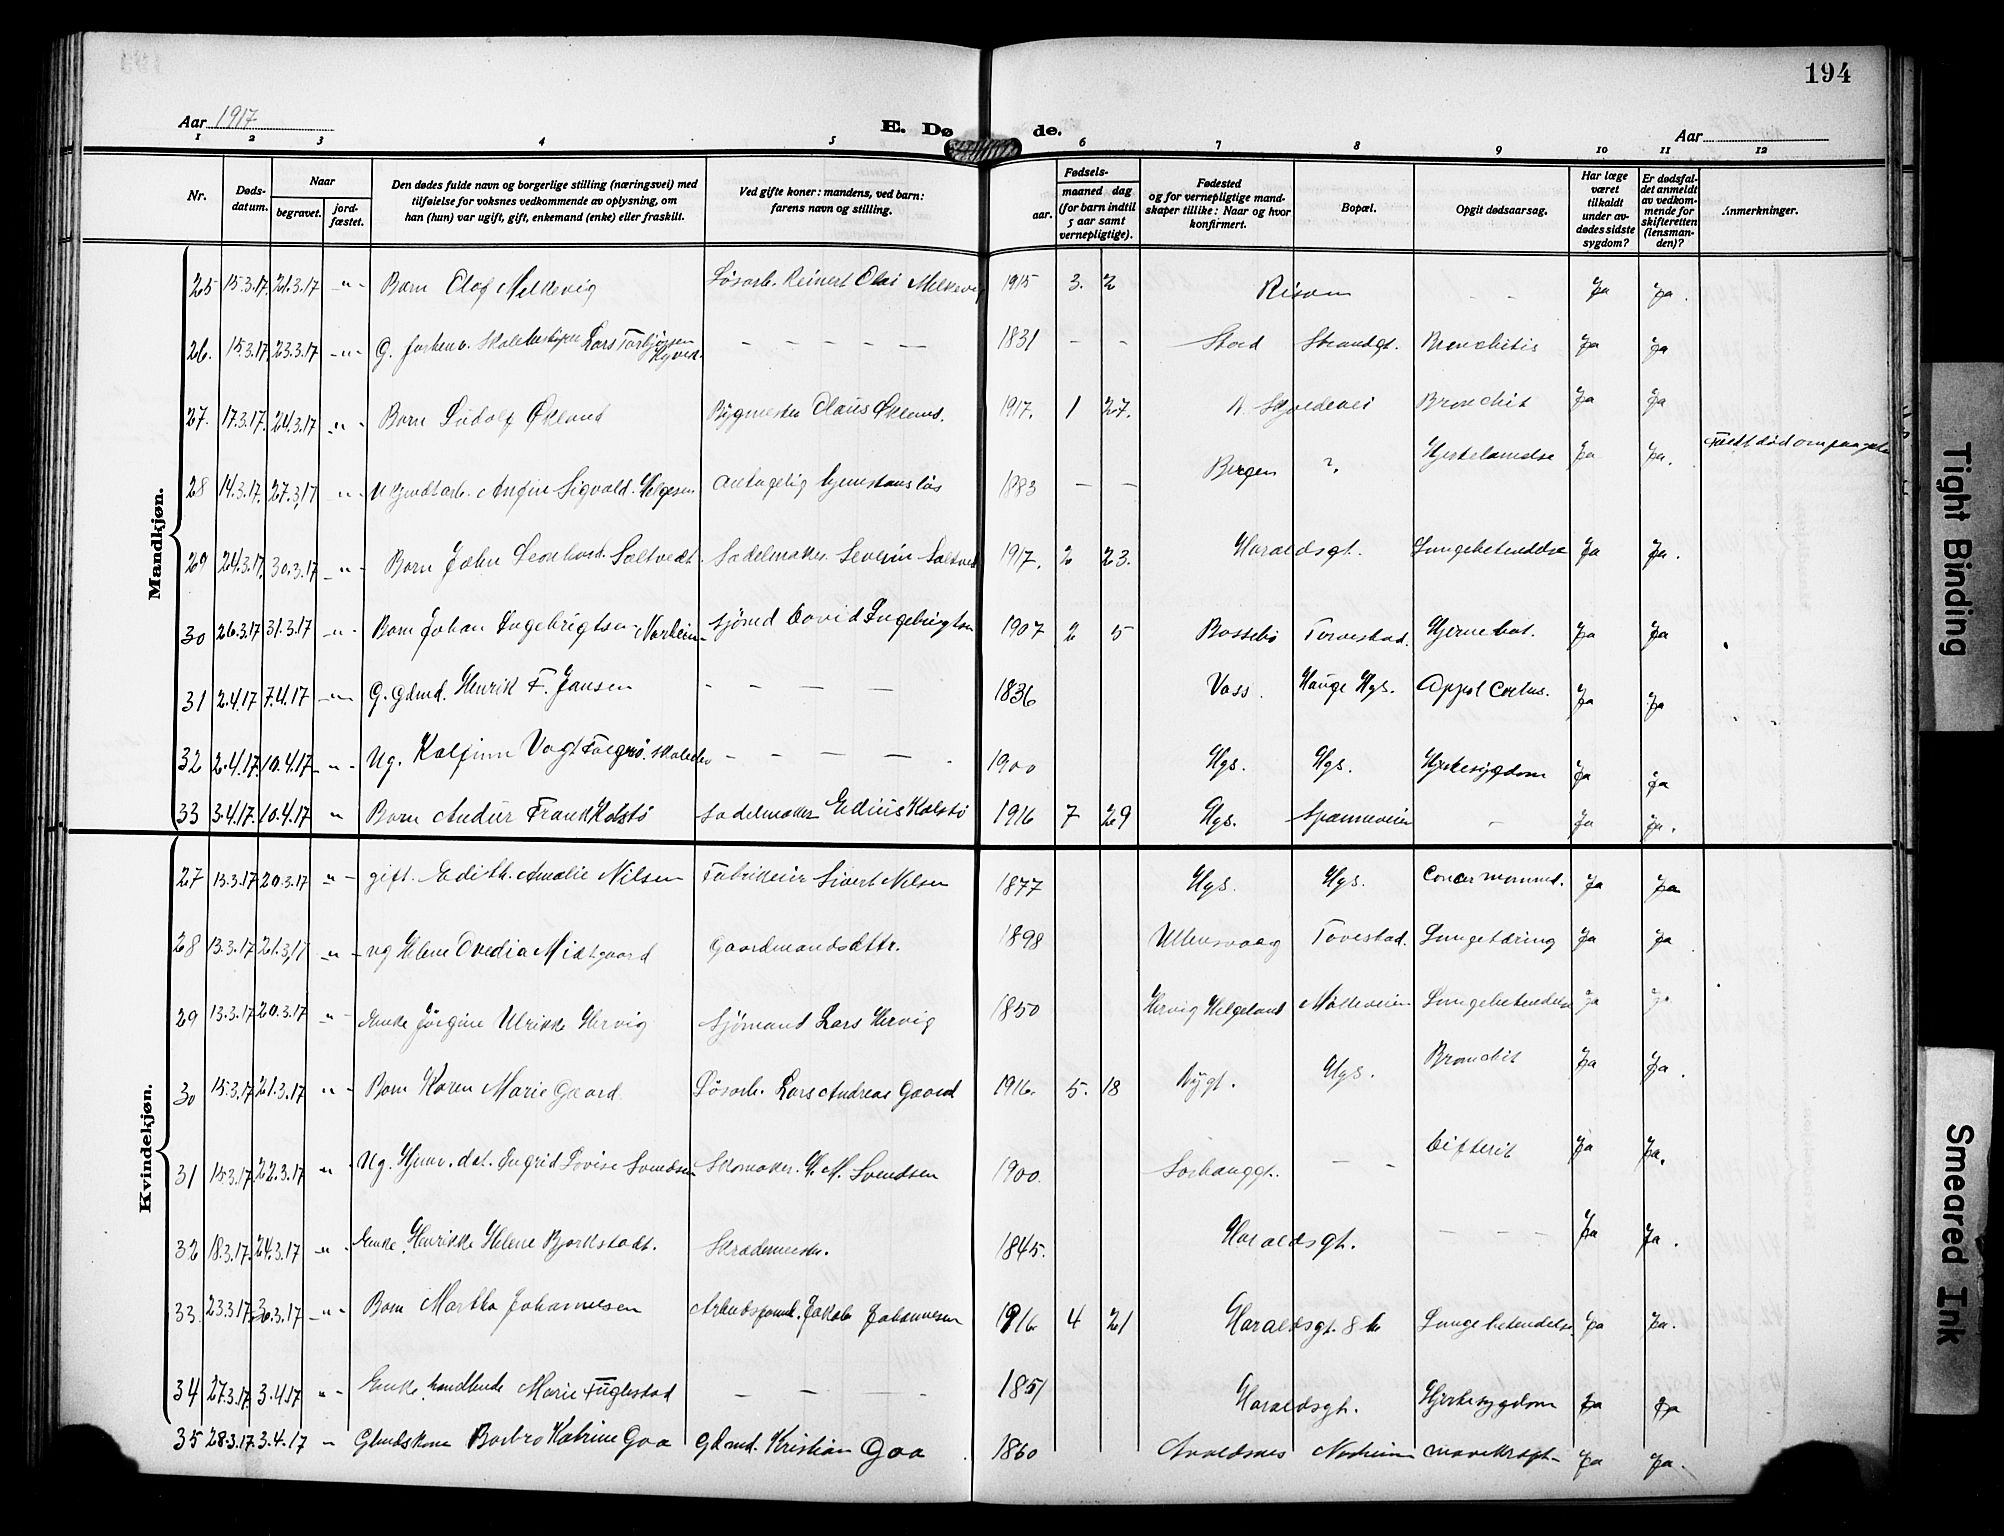 194
Aar 1917
E. Døde.
Aar
1 2 3 4 5 6 7 8 9 10 11 12
Nr.
Døds-datum.
Naar
begravet.
jord-fæstet.
Den dødes fulde navn og borgerlige stilling (næringsvei) med tilføielse for voksnes vedkommende av oplysning, om han (hun) var ugift, gift, enkemand (enke) eller fraskilt.
Ved gifte koner: mandens, ved barn: farens navn og stilling.
Fødsels-
aar.
maaned dag (for barn indtil 5 aar samt vernepligtige).
Fødested og for vernepligtige mandskaper tillike: Naar og hvor konfirmert.
Bopæl.
Opgit dødsaarsag.
Har læge været tilkaldt under avdødes sidste sygdom?
Er dødsfaldet anmeldt av vedkommende for skifteretten (lensmanden)?
Anmerkninger.
Mandkjøn.
25 15.3.17. 21.3.17 -"- Barn Olaf Melkevig Løsarb. Reinert Olai Melkevig 1915 3. 2 Risøen - - Ja Ja.
26. 15.3.17. 23.3.17 -"- G. forhenv. Skolebestyrer Lars Torbjørnsen - - - - - 1831 - - Stord Strandgt. Bronchitis Ja Ja
27. 17.3.17. 24.3.17 -"- Barn Ludolf Økland Bygmester Olaus Økland. 1917. 1 27. Bronchit Ja Ja
28 14.3.17. 27.3.17 -"- Sigvald Helgesen Antagelig hjemstansløs 1883 - - Bergen ? Ja Ja.
29 24.3.17. 30.3.17 -"- Barn John Leonhard Saltvedt. Sadelmaker Severin Saltvedt 1917. 2 23. Haraldsgt. Lungebetendelse Ja Ja.
30 26.3.17 31.3.17 -"- Barn Johan Ingebrigtsen Norheim Sjømd David Ingebrigtsen 1907 2 5 Bossebø Torvestad. Hjernebet. Ja Ja
31 2.4.17 7.4.17 -"- G. Gdmd. Henrik F. Jansen - - - - 1836 Voss. Hauge Hgs. Ja Ja
32 2.4.17 10.4.17 -"- Ug. Kolfinn Vogt skoleelev - - - - 1900 Hgs. Hgs. Hjertesygdom Ja Ja
33 3.4.17. 10.4.17 " Barn Frank Kolstø Sadelmaker Edius Kolstø 1916 7 29 Hgs. Spanneveien - Ja Ja.
Kvindekjøn.
27 13.3.17 20.3.17 "- gift. Edith Amalie Nilsen Fabrikeier Sivert Nilsen 1877 Hgs. Hgs. Cancer mammæ. Ja Ja
28 13.3.17 21.3.17 -"- ug Helene Ovedia Midtgaard Gaardmandsdttr. 1898 Ullensvaag Tovestad. Lungetæring Ja Ja
29 13.3.17 20.3.17 "- Enke Jørgine Ulrikke Hervig Sjømand Lars Hervig 1850 Hervig Helgeland Mølleveien Lungebetendelse Ja Ja
30 15.3.17 21.3.17 "- Barn Karen Marie Gaard. Løsarb. Lars Andreas Gaard 1916. 5. 18 Nygt. Hgs. Bronchit Ja Ja.
31 15.3.17. 22.3.17 "- Ug. Hjemv. dat. Ingrid Lovise Svendsen Skomaker. H. M. Svendsen 1900. Sørhauggt. - - Difterit Ja Ja.
32 18.3.17. 24.3.17 -"- Enke. Henrikke Helene Bjørkstadt. Skrædermester. 1845. Haraldsgt. - - - Ja Ja.
33 23.3.17. 30.3.17 -"- Barn Martha Johannesen Arbeidsformd. Jakob Johannesen 1916 4 21 Haraldsgt. 8 Lungebetendelse Ja Ja.
34 27.3.17. 3.4.17 "- Enke, handlende Marie Fuglestad - - - - 1851 Haraldsgt. Hjertesygdom Ja Ja
35 28.3.17. 3.4.17 - Gmdskone Barbro Katrine Goa Gdmd. Kristian Goa 1860 Avaldsnes Norheim mavekræft- Ja Ja.
Tight Binding
Smeared Ink